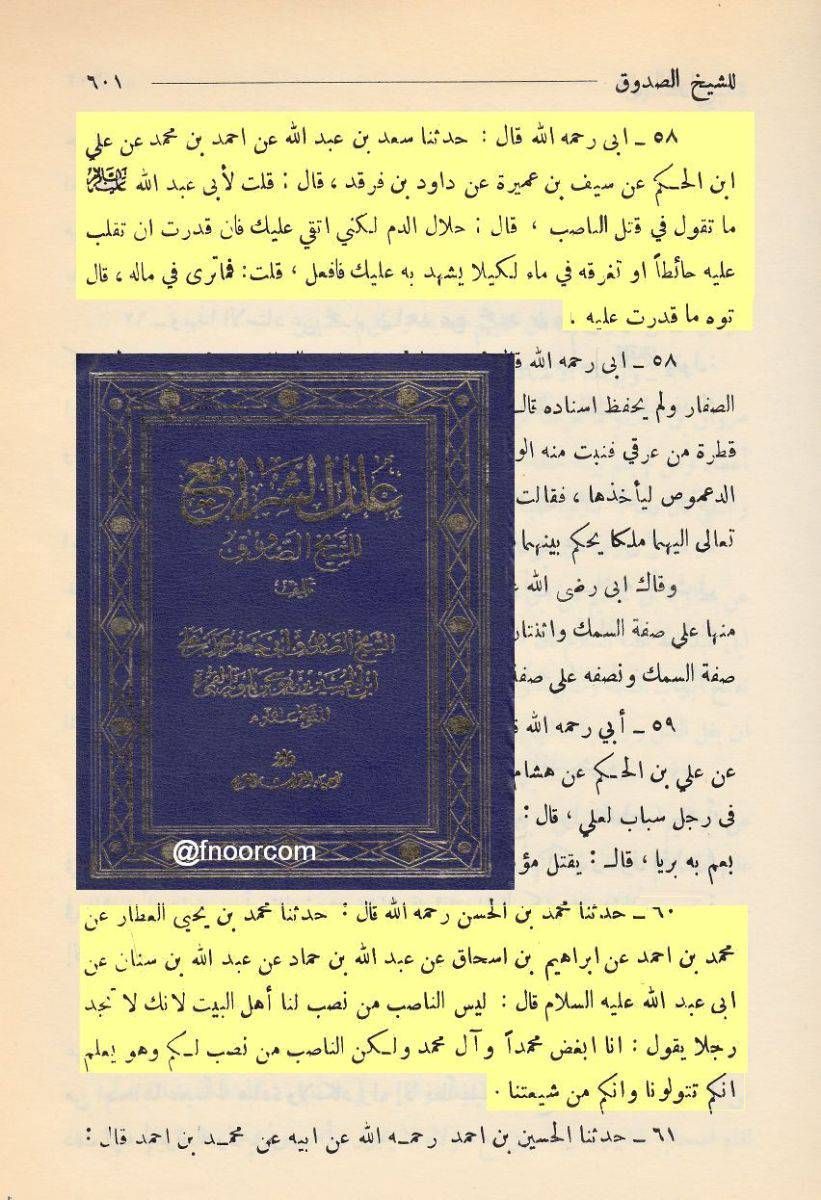 للشيخ الصدوق ٦٠١
٥٨ ـ ابى رحمه الله قال : حدثنا سعد بن عبد الله عن احمد بن محمد عن علي
ابن الحـكم عن سيف بن عميرة عن داود بن فرقد ، قال : قلت لأبى عبد الله عليه السلام
ما تقول في قتل الناصب ، قال : حلال الدم لكني اتقي عليك فان قدرت ان تقلب
عليه حائطاً او تغرقه في ماء لكيلا يشهد به عليك فافعل ، قلت : فما ترى في ماله ، قال
توه ما قدرت عليه .
٥٨ ـ ابى رحمه الله
الصفار ولم يحفظ اسناده
قطرة من عرقي فنبت منه
الدعموص ليأخذها ، فقالت
تعالى اليهما ملكا يحكم بينهما
وقال ابى رضى الله
منها على صفة السمك
صفة السمك ونصفه على
٥٩ ـ أبي رحمه الله
عن علي بن الحـكم عن هشام
فى رجل سباب لعلي ، قال :
بعم به بريا ، قال : يقتل
علل الشرائع
للشيخ الصدوق
تأليف
الشيخ الصدوق أبى جعفر محمد بن علي
@fnoorcom
٦٠ ـ حدثنا محمد بن الحسن رحمه الله قال : حدثنا محمد بن يحيى العطار عن
محمد بن احمد عن ابراهيم بن اسحاق عن عبد الله بن حماد عن عبد الله بن سنان عن
ابى عبد الله عليه السلام قال : ليس الناصب من نصب لنا أهل البيت لانك لا تجد
رجلا يقول : انا ابغض محمداً وآل محمد ولـكن الناصب من نصب لـكم وهو يعلم
انكم تتولونا وانكم من شيعتنا .
٦١ ـ حدثنا الحسين بن احمد رحمـه الله عن ابيه عن محمـد بن احمد قال :